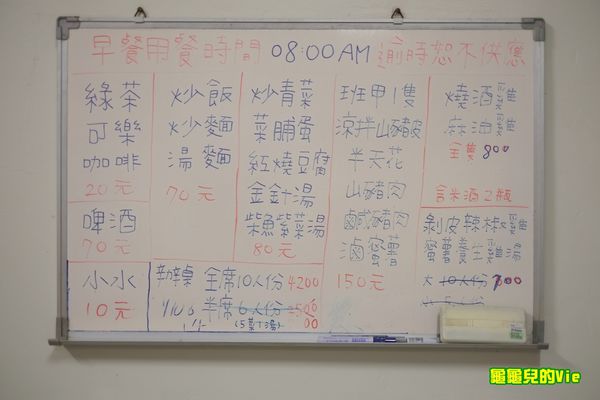 早餐用餐時間 08:00AM 逾時恕不供應
綠茶
可樂
咖啡
20元
啤酒
70元
小水
10元
炒飯
炒麵
湯麵
70元
炒青菜
菜脯蛋
紅燒豆腐
金針湯
柴魚紫菜湯
80元
班甲1隻
涼拌山豬皮
半天花
山豬肉
鹹豬肉
150元
燒酒雞
麻油雞
全隻 800
含米酒2瓶
剝皮辣椒雞
雞湯
大 10人份 700
辦桌 全席10人份 4200
半席 6人份 2500
(5菜1湯)
龜龜兒的Vie